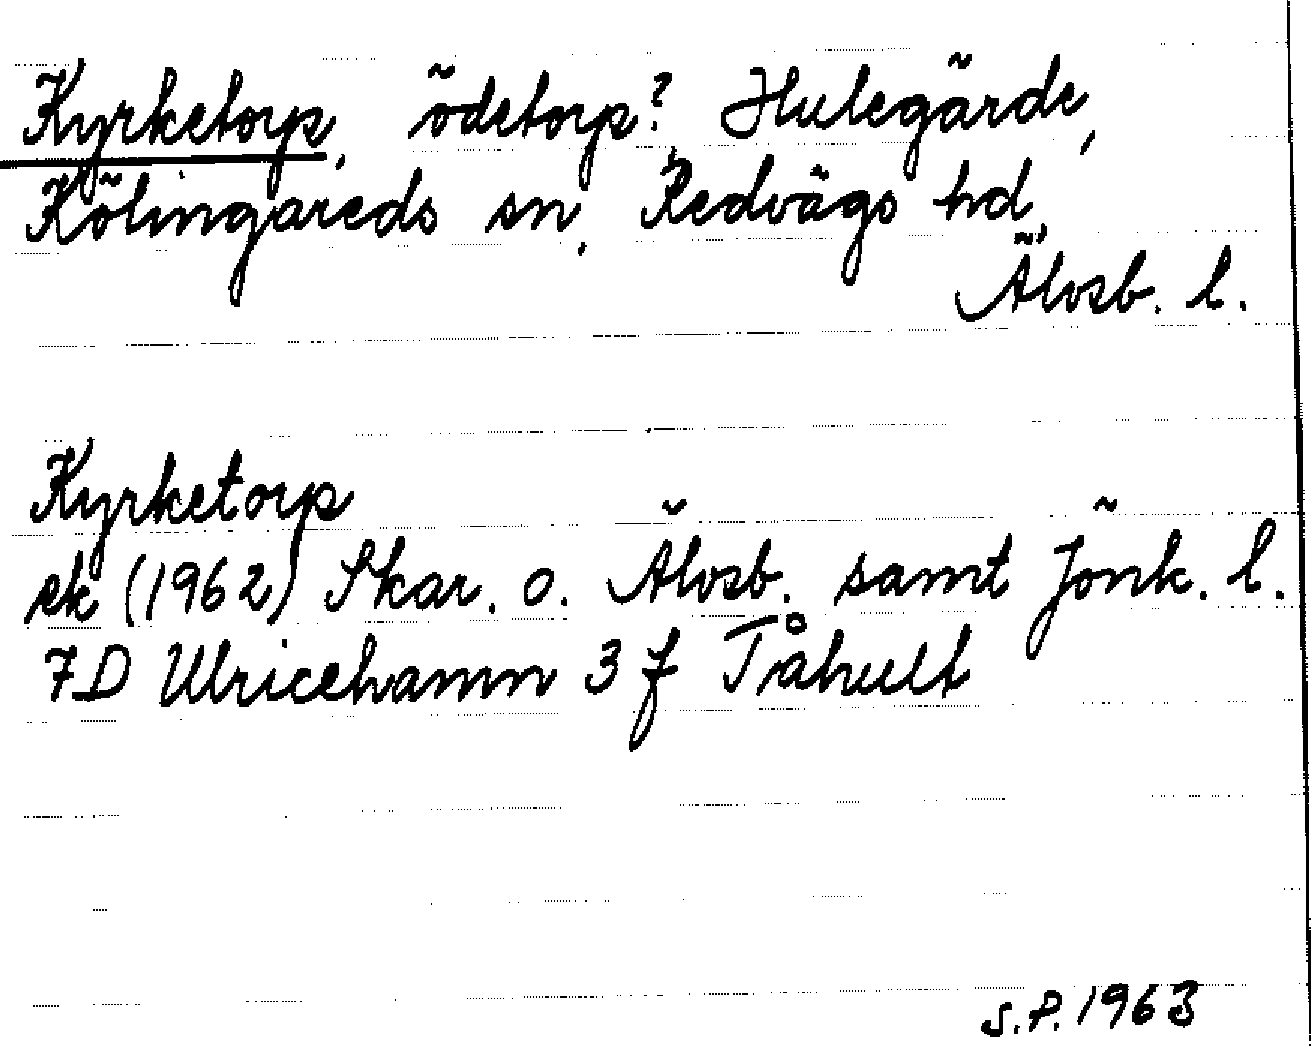 Kyrketorp, ödetorp? Hulegärde,
Kölingareds sn, Redvägs hd,
Älvsb. l.
Kyrketorp
ek (1962) Skar. o. Älvsb. samt Jönk. l.
7D Ulricehamn 3 f Tåhult
S.P. 1963